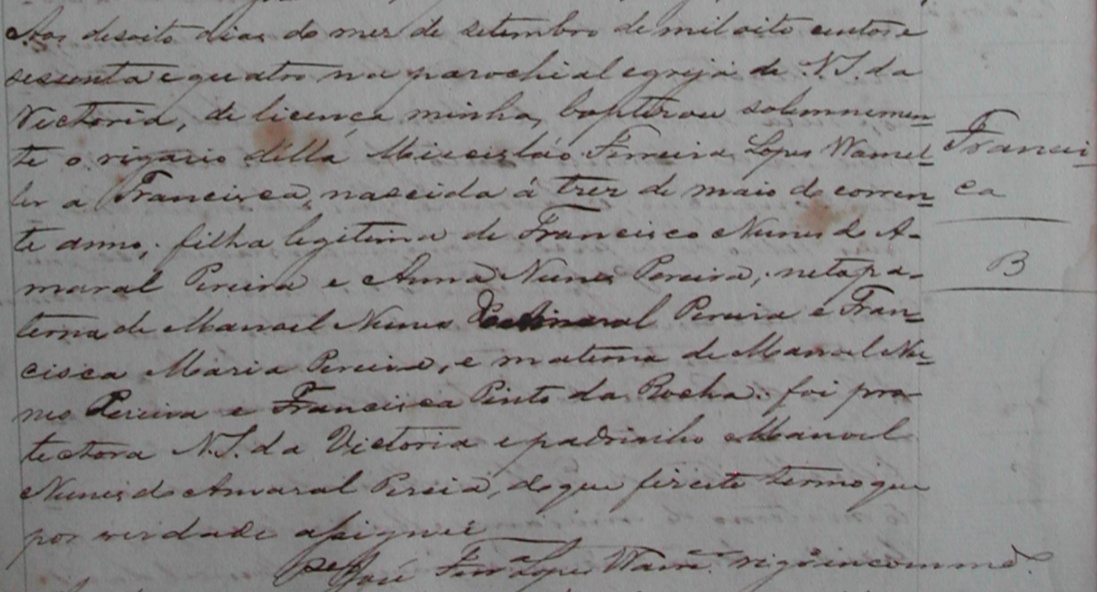 Aos desoito dias do mez de setembro de mil oito centos e
sessenta e quatro na parochial egreja de N. S. da
Victoria, de licença minha, baptisou solemnemen=
te o vigario Miecesláo Ferreira Lopes Wanel=
ler a Francisca, nascida á trez de maio do corren=
te anno, filha legitima de Francisco Nunes do A-
maral Pereira e Anna Nunes Pereira, neta pa-
terna de Manoel Nunes do Amaral Pereira e Fran=
cisca Maria Pereira, e materna de Manoel Nu=
nes Pereira e Francisca Pinto da Rocha: foi pro-
tectora N. S. da Victoria e padrinho Manoel
Nunes do Amaral Pereia, do que fiz este termo que
por verdade assignei
José Ferr.a Lopes vigº incommdº.
Francis
ca
B